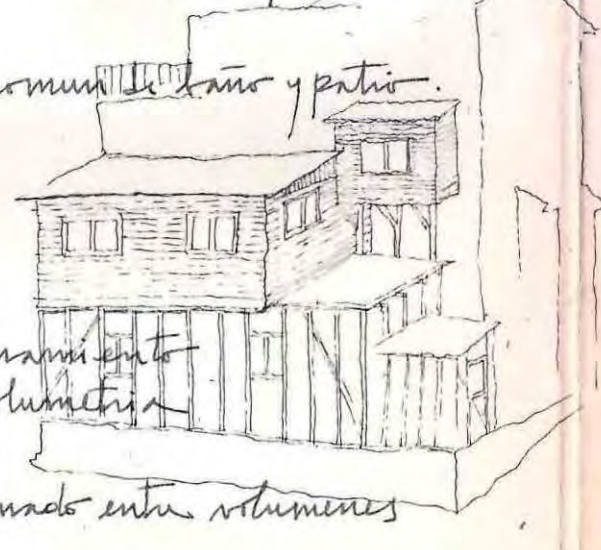 comun de baño y patio.
namiento
lumetria
nado entre volumenes